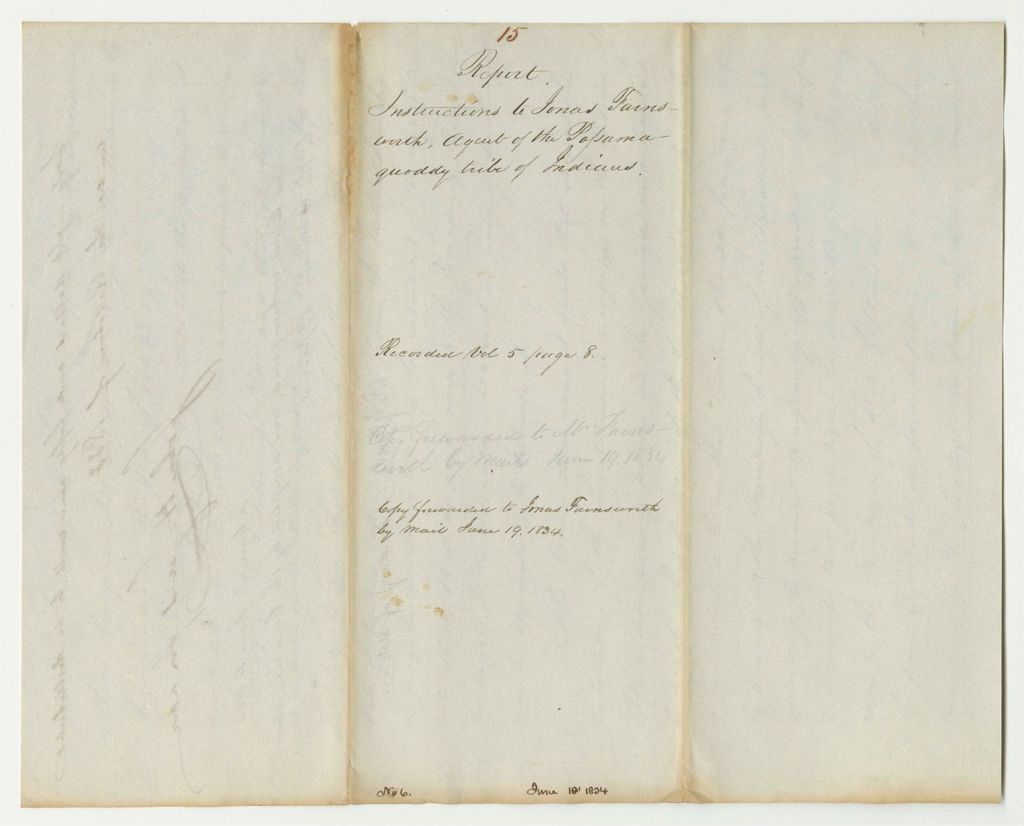 15
Report.
Instructions to Jonas Farns-
worth, Agent of the Passama
quoddy tribe of Indians.
Recorded Vol 5 page 8.
Copy forwarded to Mr Farns-
worth by Mail June 19, 1834
Copy forwarded to Jonas Farnsworth
by Mail June 19. 1834.
No 6.
June 19' 1834